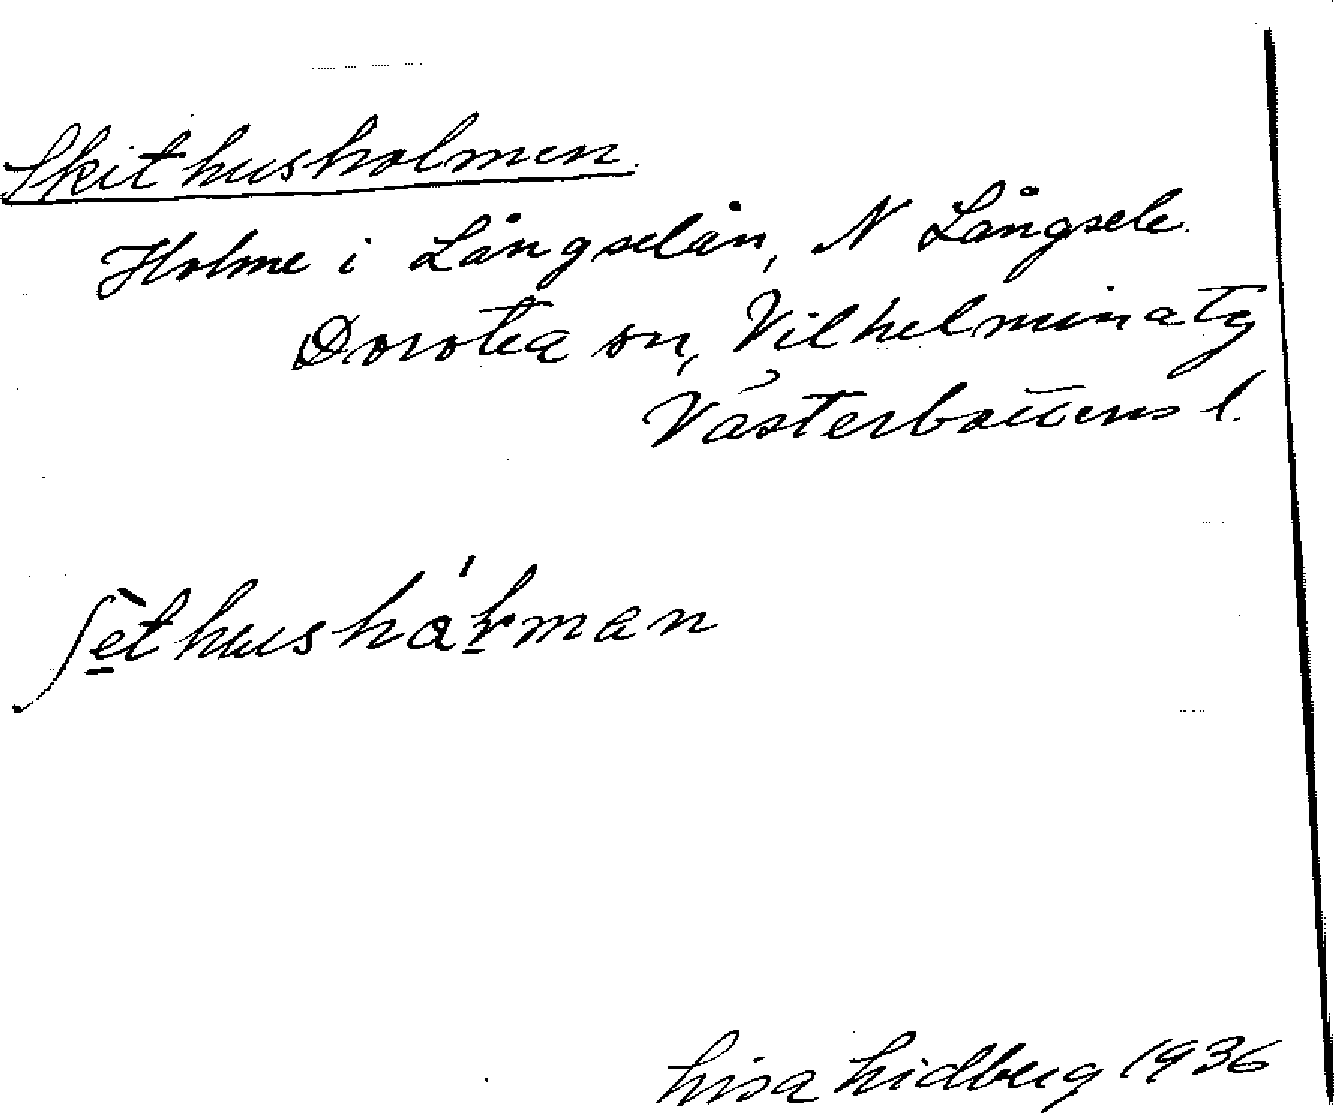 Skithusholmen.
Holme i Långselån, N Långsele.
Dorotea sn, Vilhelmina tg
Västerbottens l.
ʃet hushårman
Lisa Lidberg 1936